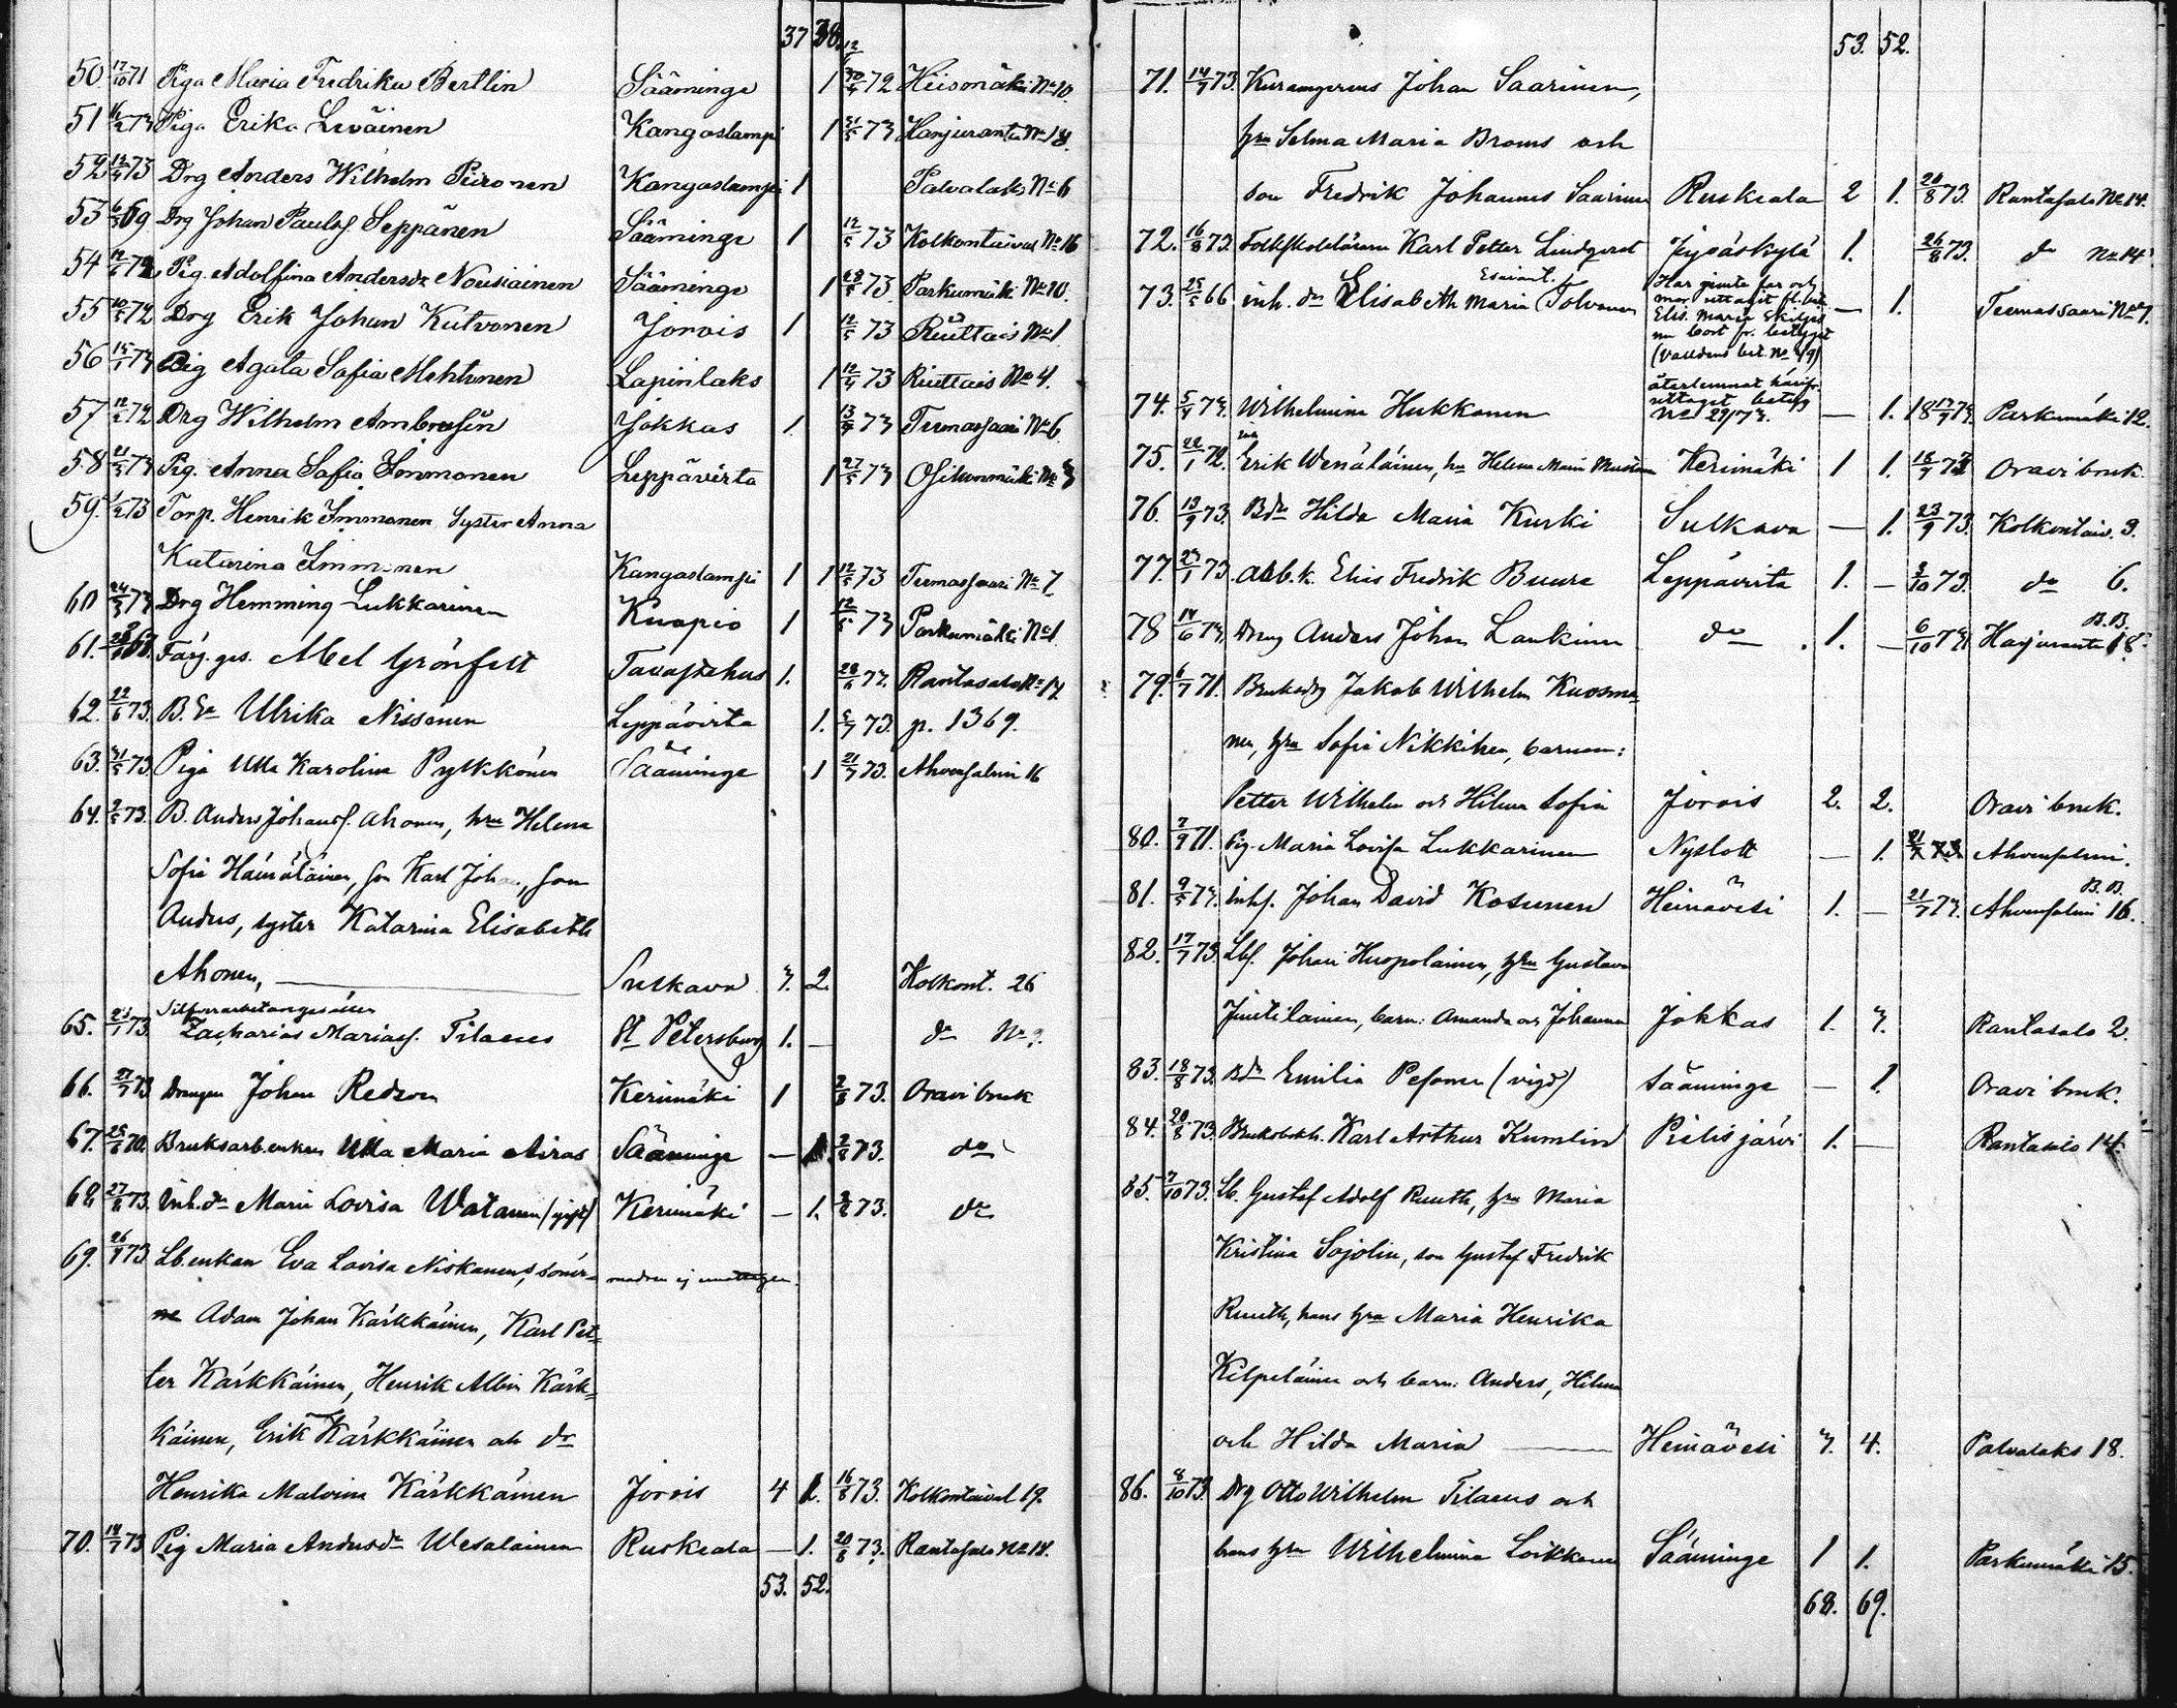 37 38.
50. 17/10 71 Piga Maria Fredrika Bertlin Sääminge 1 30/4 72 Heisomäki No 10.
51 Piga Erika Leväinen Kangaslampi 1 31/5 73 Harjuranta No 18.
52 73 Drg Anders Wilhelm Piironen Kangaslampi 1 Palvalaks No 6
53 69 Drg Johan Paulsf Seppänen Sääminge 1 12/5 73 Kolkontaival No 16
54 Pig. Adolfina Andersdr Nousiainen Sääminge 1 73 Parkumäki No 10.
55 10/5 72 Drg Erik Johan Kutvonen Jorois 1 12/5 73 No 1
56 15/1 73 Pig Agata Sofia Mehtonen Lapinlaks 1 73 No 4.
57 72 Drg Wilhelm Jokkas 1. 73 Teemassaari No 6
58 21/5 73 Pig. Anna Sofia Immonen Leppävirta 1 27/5 73
59. 73 Torp. Henrik Immonen Syster Anna
Katarina Immonen Kangaslampi 1 1 12/5 73 Teemassaari No 7
60 24/3 73 Drg Hemming Lukkarinen Kuopio 1 12/5 73 Parkumäki No 1
61. Färg. ges. Abel Grönfelt Tavastehus 1. 28/6 73. Rantasalo No 14
62. 22/6 73. Ulrika Nissinen Leppävirta 1. 73. p. 1369.
63. 31/5 73. Piga Ulla Karolina Pylkkönen Sääminge 1 21/7 73. Ahvensalmi 16
64. 2/5 73. B. Anders Johansf. Ahonen, hru Helena
Sofia Hämäläinen, son Karl Johan, son
Anders, syster Katarina Elisabeth
Ahonen, Sulkava 3. 2. Kolkont. 26
Silfverarbetaregesällen
65. 73. Zacharias Mariasf. Tilaeus St Petersburg 1. — do
66. 27/7 73 Drengen Johan Kerimäki 1 2/8 73. Oravi bruk
67. 70. Bruksarb.enkan Ulla Maria Airas Sääminge — 1. 2/8 73. do
68. 73. Inh.dr Maria Lovisa Watanen (gift) Kerimäki — 1. 2/8 73. do
69. 73 Lb.enkan Eva Lovisa Niskanens, söner- modren ej emottagen.
ne Adam Johan Kärkkäinen, Karl Pet-
ter Kärkkäinen, Henrik Albin Kärk-
käinen, Erik Kärkkäinen och dr
Henrika Malvina Kärkkäinen Jorois 4 1. 16/8 73. Kolkontaival 19.
70. 14/7 73 Pig Maria Andersdr Wesalainen Ruskeala — 1. 20/8 73. Rantasalo No 14.
53. 52.
53. 52.
71. 14/7 73. Johan Saarinen,
hru Selma Maria Broms och
son Fredrik Johannes Saarinen Ruskeala 2 1. 20/8 73. Rantasalo No 14.
72. 16/8 73. Folkskolelärarn Karl Petter Lindqvist Jyväskylä 1. 26/8 73. do No 14.
73. 25/5 66 inh. dr Elisabeth Maria Tolvanen — 1. Teemassaari No 7.
Elis. Maria
74. 73. Wilhelmina Hukkanen — 1. 73. Parkumäki 12.
75. 22/1 72. Erik Wenäläinen, hu Helena Maria Kerimäki 1 1. 73 Oravi bruk.
76. 13/9 73. Bdr Hilda Maria Kurki Sulkava — 1. 23/9 73. Kolkontaiv. 3.
77. 73. Arb.k. Elias Fredrik Buure Leppävirta 1. — 73. do 6.
B.B.
78 14/6 73. Dreng Anders Johan Laukinen do 1. — 6/10 73 Harjuranta 18.
79. 6/7 71. Bruksdrg Jakob Wilhelm Kuosma-
nen, hru Sofia Nikkinen, barnen:
Petter Wilhelm och Hilma Sofia Jorois 2. 2. Oravi bruk.
80. 7/9 71. Pig. Maria Lovisa Lukkarinen Nyslott — 1. 21/7 73. Ahvensalmi.
B.B.
81. 9/5 73. Johan David Kosunen Heinävesi 1. — 21/7 73. Ahvensalmi 16.
82. 17/7 73. Lbf. Johan Huopolainen, hru Gustava
Jintilainen, barn: Amanda och Johanna Jokkas 1. 3. Rantasalo 2.
83. 18/8 73. Bdr Emilia Pesonen (vigd) Sääminge — 1. Oravi bruk.
84. 20/8 73. Bruksbokh. Karl Arthur Kumlin Pielisjärvi 1. — Rantasalo 14.
85. 7/10 73. Lb. Gustaf Adolf Ruuth, hru Maria
Kristina Sojolin, son Gustaf Fredrik
Ruuth, hans hru Maria Henrika
Kilpeläinen och barn: Anders, Hilma
och Hilda Maria Heinävesi 3. 4. Palvalaks 18.
86. 8/10 73. Drg Otto Wilhelm Tilaeus och
hans hru Wilhelmina Loikkanen Sääminge 1 1. Parkumäki 15.
68. 69.